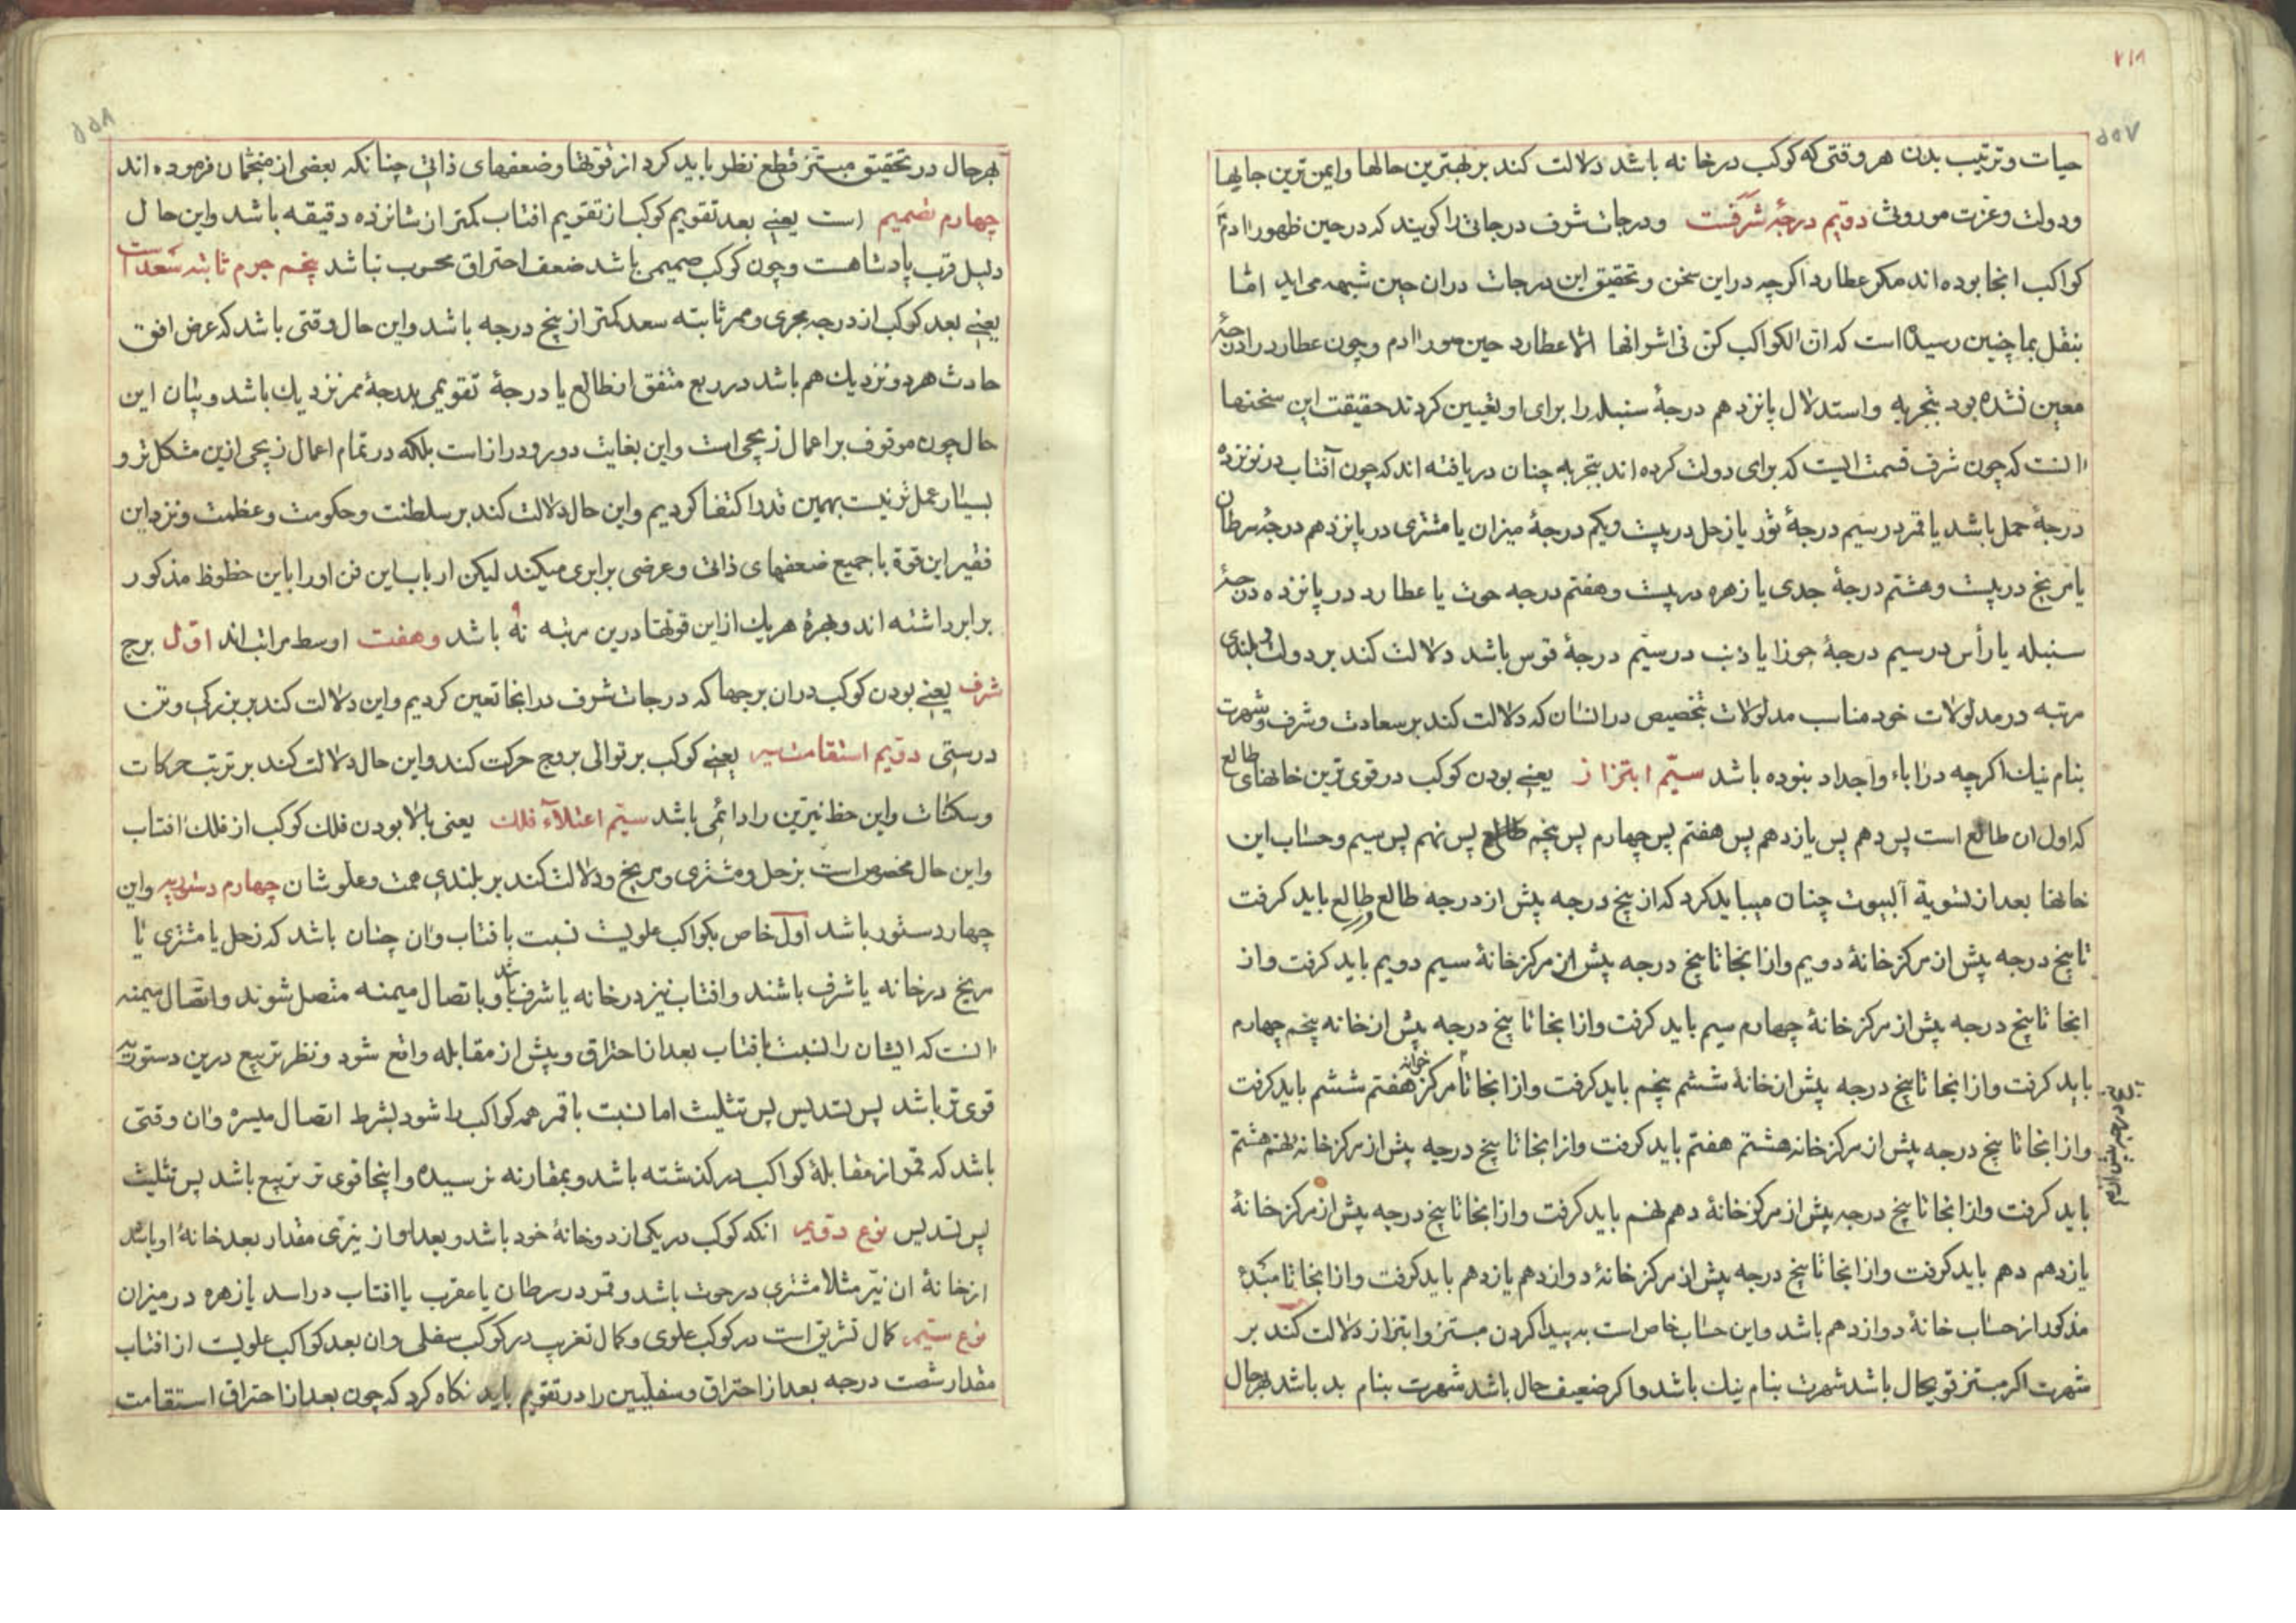 ۲۱۸
۵۵۷
حیات و ترتیب بدن هر وقتی که کوکب در خانه باشد دلالت کند بر بهترین حالها و ایمن ترین جایها
و دولت و عزت موروث دویم درجهٔ شرفست و درجات شرف درجاتی را کویند که در حین ظهور ادم
کواکب انجا بوده اند مکر عطارد اکرچه در این سخن و تحقیق این درجات دران حین شبهه می اید اما
بنقل بما چنین رسیده است که ان الکواکب کن فی اشرافها الا عطارد حین صور ادم و چون عطارد را دن
معین نشده بود بتجربه و استدلال پانزدهم درجهٔ سنبله را برای او تعیین کردند حقیقت این سخنها
انست که چون شرف قسمت الیست که برای دولت کرده اند بتجربه چنان دریافته اند که چون آفتاب در نوزده
درجهٔ حمل باشد یا قمر در سیم درجهٔ ثور یا زحل در بیست ویکم درجهٔ میزان یا مشتری در پانزدهم درجهٔ سرطان
یا مریخ در بیست و هشتم درجهٔ جدی یا زهره در بیست و هفتم درجه حوت یا عطارد در پانزده
سنبله یا رأس در سیم درجهٔ جوزا یا ذنب در سیم درجهٔ قوس باشد دلالت کند بر دولت و بلندی
مرتبه در مدلولات خود مناسب مدلولات بتخصیص در انسان که دلالت کند بر سعادت و شرف و شهرت
بنام نیک اکرچه در اباء و اجداد بنوده باشد سیّم ابتزاز یعنے بودن کوکب در قوی ترین خانهای طالع
که اول ان طالع است پس دهم پس یازدهم پس هفتم پس چهارم پس پنجم طالع پس نهم پس سیم و حساب این
خانها بعد از تسویة آلبیوت چنان میباید کرد که از پنج درجه پیش از درجه طالع طالع باید کرفت
تا پنج درجه پیش از مرکز خانهٔ دویم و از انجا تا پنج درجه پیش از مرکز خانهٔ سیم دویم باید کرفت و از
انجا تا پنج درجه پیش از مرکز خانهٔ چهارم سیم باید کرفت و از انجا تا پنج درجه پیش از خانه پنجم چهارم
باید کرفت و از انجا تا پنج درجه پیش از خانهٔ ششم پنجم باید کرفت و از انجا تا مرکز خانه هفتم ششم باید کرفت
و از انجا تا پنج درجه پیش از مرکز خانه هشتم هفتم باید کرفت و از انجا تا پنج درجه پیش از مرکز خانه نهم هشتم
باید کرفت و از انجا تا پنج درجه پیش از مرکز خانهٔ دهم نهم باید کرفت و از انجا تا پنج درجه پیش از مرکز خانهٔ
یازدهم دهم باید کرفت و از انجا تا پنج درجه پیش از مرکز خانهٔ دوازدهم یازدهم باید کرفت و از انجا تا مبدء
مذکور از حساب خانهٔ دوازدهم باشد و این حساب خاص است به پیدا کردن مبتز و ابتزاز دلالت کند بر
شهرت اکر مبتز قویحال باشد شهرت بنام نیک باشد و اکر ضعیف حال باشد شهرت بنام بد باشد بهر حال
۵۵۸
بهر حال در تحقیق مبتز قطع نظر باید کرد از قوتها و ضعفهای ذاتی چنانکه بعضی از منجمان فرموده اند
چهارم تصمیم است یعنے بعد تقویم کوکب از تقویم افتاب کمتر از شانزده دقیقه باشد و این حال
دلیل قرب پادشاهست و چون کوکب صمیمی باشد ضعف احتراق محسوب نباشد پنجم جرم ثابته سعد است
یعنے بعد کوکب از درجه مجری و ممر ثابته سعد کمتر از پنج درجه باشد و این حال وقتی باشد که عرض افق
حادث هر دو نزدیک هم باشد در ربع متفق از طالع یا درجهٔ تقویمی بدرجهٔ ممر نزدیک باشد و بیان این
حال چون موقوف بر اعمال زیجی است و این بغایت دور و دراز است بلکه در تمام اعمال زیجی ازین مشکل تر و
بسیار عمل تر نیست بهمین قدر اکتفا کردیم و این حال دلالت کند بر سلطنت و حکومت و عظمت و نزد این
فقیر این قوة با جمیع ضعفهای ذاتی و عرضی برابری میکند لیکن ارباب این فن او را باین حظوظ مذکور
برابر داشته اند و بهرهٔ هریک از این قوتها درین مرتبه نه ۹ باشد وهفت اوسط مراتب اند اوّل برج
شرف یعنے بودن کوکب دران برجها که درجات شرف در انجا تعین کردیم و این دلالت کند بر بزرکی و تن
درستی دویم استقامت سیر یعنے کوکب بر توالی بروج حرکت کند و این حال دلالت کند بر ترتیب حرکات
و سکنات و این حظ نیرین را دائمی باشد سیّم اعتلآء فلک یعنی بالا بودن فلک کوکب از فلک افتاب
و این حال مخصوص است بزحل و مشتری و مریخ و دلالت کند بر بلندی همت و علو شان چهارم دستوریه و این
چهار دستور باشد اول خاص بکواکب علویست نسبت بافتاب و ان چنان باشد که زحل یا مشتری یا
مریخ در خانه یا شرف باشند و افتاب نیز در خانه یا شرف باشد و باتصال میمنه متصل شوند و اتصال میمنه
انست که ایشان را نسبت بافتاب بعد از احتراق و پیش از مقابله واقع شود و نظر تربیع درین دستوریه
قوی تر باشد پس تسدیس پس تثلیث اما نسبت با قمر همه کواکب را شود بشرط اتصال میسره و ان وقتی
باشد که قمر از مقابلهٔ کواکب در کذشته باشد و بمقارنه نرسیده و اینجا قوی تر تربیع باشد پس تثلیث
پس تسدیس نوع دویم انکه کوکب در یکی از دو خانهٔ خود باشد و بعد او از نیری مقدار بعد خانهٔ او باشد
از خانهٔ ان نیّر مثلا مشتری در حوت باشد و قمر در سرطان یا عقرب یا افتاب در اسد یا زهره در میزان
نوع سیّم کمال تشریق است در کوکب علوی و کمال تغریب در کوکب سفلی و ان بعد کواکب علویست از افتاب
مقدار شصت درجه بعد از احتراق و سفلیین را در تقویم باید نکاه کرد که چون بعد از احتراق استقامت